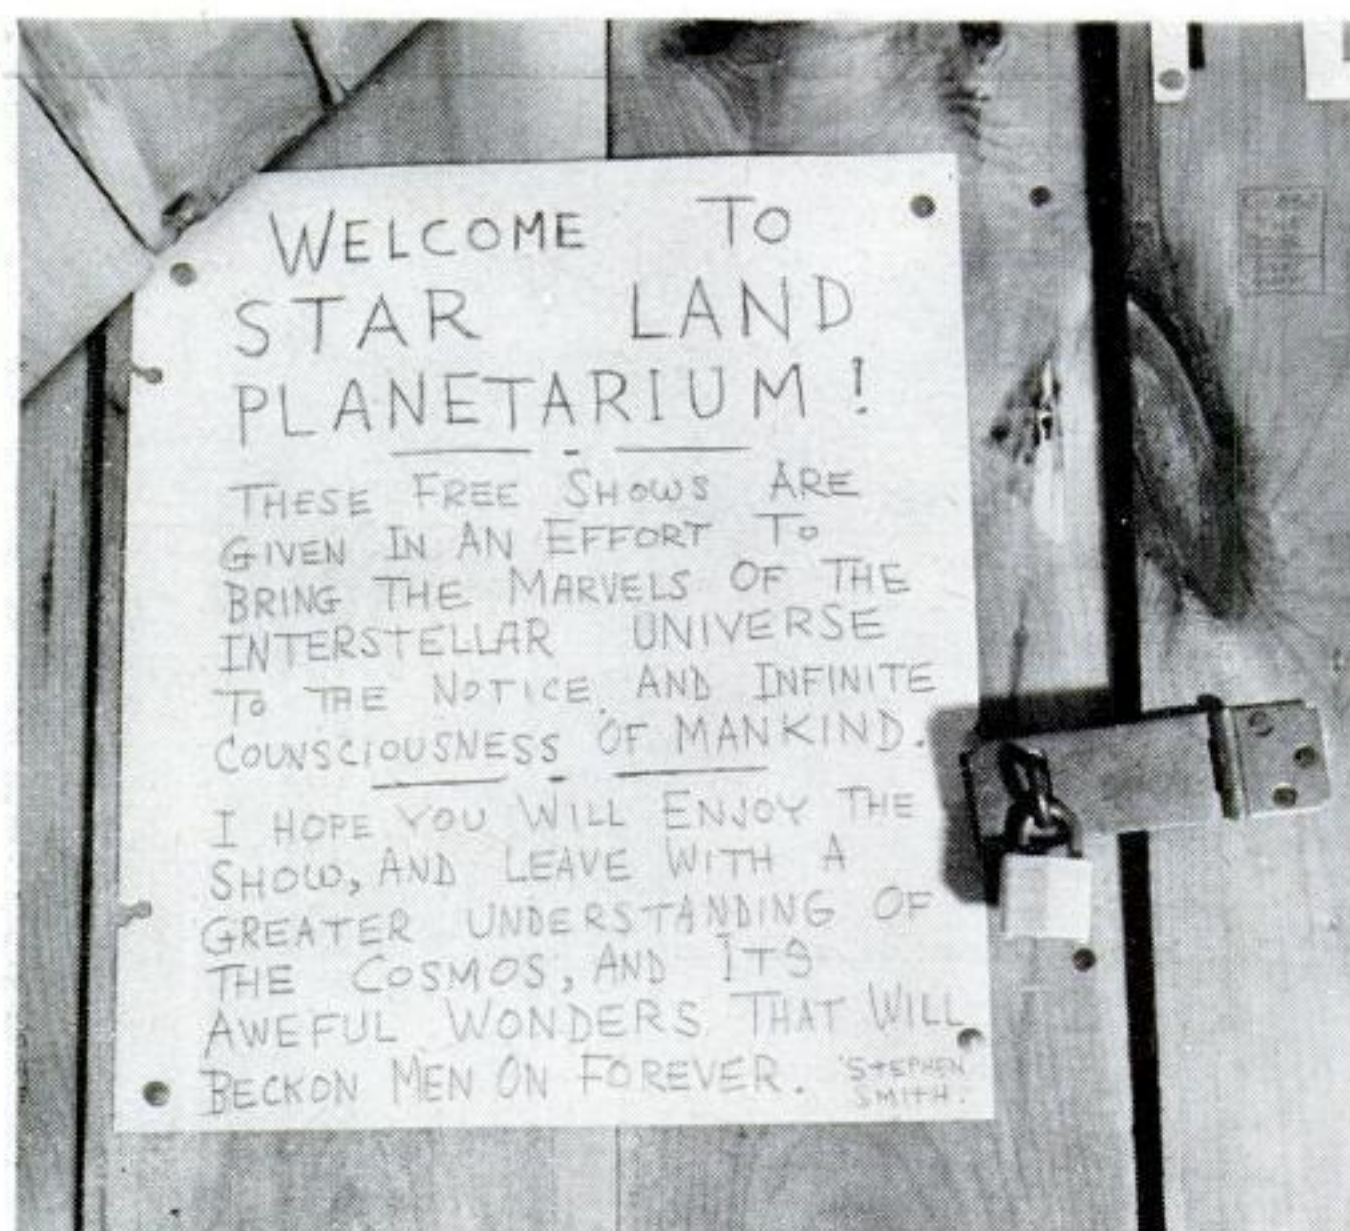 WELCOME TO
STAR LAND
PLANETARIUM!
THESE FREE SHOWS ARE
GIVEN IN AN EFFORT TO
BRING THE MARVELS OF THE
INTERSTELLAR UNIVERSE
TO THE NOTICE AND INFINITE
COUNSCIOUSNESS OF MANKIND.
I HOPE YOU WILL ENJOY THE
SHOW, AND LEAVE WITH A
GREATER UNDERSTANDING OF
THE COSMOS, AND ITS
AWEFUL WONDERS THAT WILL
BECKON MEN ON FOREVER.
STEPHEN
SMITH.